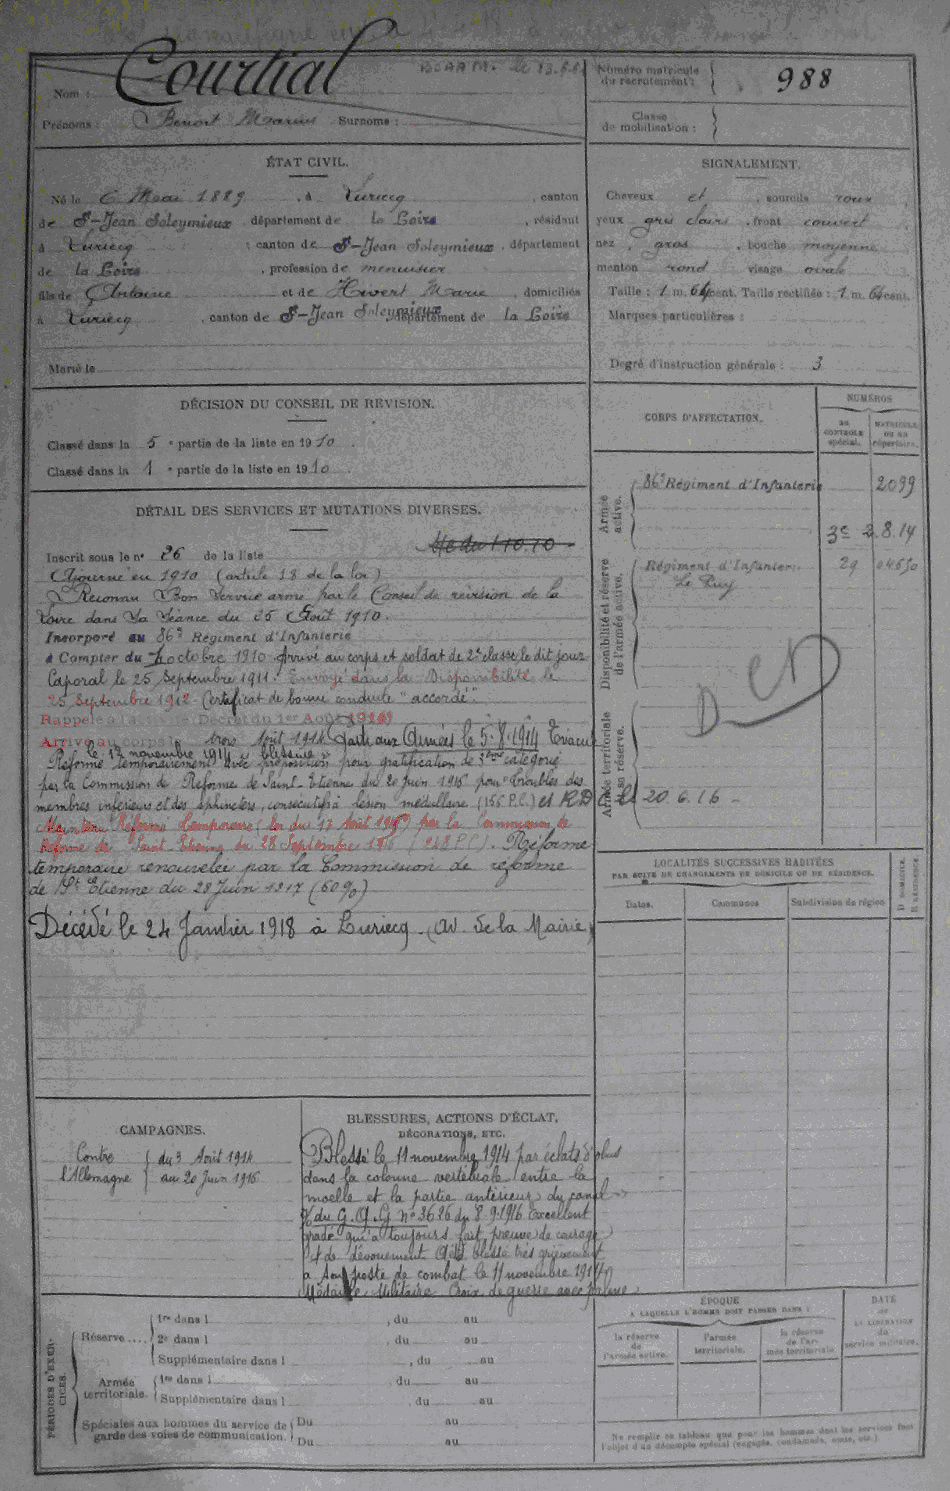 Nom : Courtial
Prénoms : Benoit Marius Surnoms :
Numéro matricule du recrutement : 988
Classe de mobilisation :
ÉTAT CIVIL.
Né le 6 Mai 1889, à Luriecq, canton
de St-Jean Soleymieux département de la Loire, résidant
à Luriecq, canton de St-Jean Soleymieux, département
de la Loire, profession de menuisier
fils de Antoine et de Hivert Marie, domiciliés
à Luriecq, canton de St-Jean Soleymieux, département de la Loire
Marié le
SIGNALEMENT.
Cheveux et sourcils roux
yeux gris clairs, front couvert
nez gros, bouche moyenne
menton rond visage ovale
Taille : 1 m. 64 cent. Taille rectifiée : 1 m. 64 cent.
Marques particulières :
Degré d'instruction générale : 3
DÉCISION DU CONSEIL DE REVISION.
Classé dans la 5e partie de la liste en 1910.
Classé dans la 1e partie de la liste en 1910.
DÉTAIL DES SERVICES ET MUTATIONS DIVERSES.
Inscrit sous le n° 26 de la liste
Ajourné en 1910 (article 18 de la loi)
Reconnu Bon Service armé par le Conseil de révision de la
Loire dans sa Séance du 25 Août 1910.
Incorporé au 86e Régiment d'Infanterie
à Compter du octobre 1910 Arrivé au corps et soldat de 2e classe le dit jour
Caporal le 25 Septembre 1911. Envoyé dans la Disponibilité le
25 Septembre 1912. Certificat de bonne conduite "accordé".
Rappelé à l'activité Décret du 1er Août 1914
Arrivé au corps le trois Août 1914 Parti aux Armées le 5.8.1914 Evacué
le 12 novembre 1914 blessure
Réformé temporairement avec proposition pour gratification de 3ème catégorie
par la Commission de Réforme de Saint-Etienne du 20 Juin 1916 pour troubles des
membres inférieurs et des sphincters, consécutifs à lésion médullaire (156 P.C.) et R.D.C. le 20.6.16 -
Maintenu Réformé temporaire (loi du 17 Août 1915) par la Commission de
Réforme de Saint-Etienne du 28 Septembre 1916 Réforme
temporaire renouvelée par la Commission de réforme
de St Etienne du 28 Juin 1917 (60%)
Décédé le 24 Janvier 1918 à Luriecq (av. de la Mairie)
CORPS D'AFFECTATION.
NUMÉROS
au contrôle spécial.
matricule ou au répertoire.
Armée active.
86e Régiment d'Infanterie 2099
3e 2.8.14
Disponibilité et réserve de l'armée active.
Régiment d'Infanterie 29
Le Puy
DCD
Armée territoriale et sa réserve.
LOCALITÉS SUCCESSIVES HABITÉES
PAR SUITE DE CHANGEMENTS DE DOMICILE OU DE RÉSIDENCE.
Dates. Communes Subdivision de région D domicile. R résidence.
CAMPAGNES.
Contre l'Allemagne
du 3 Août 1914
au 20 Juin 1916
BLESSURES, ACTIONS D'ÉCLAT,
DÉCORATIONS, ETC.
Blessé le 11 novembre 1914 par éclats d'obus
dans la colonne vertébrale entre la
moelle et la partie antérieure du canal
du G.Q.G n° 3626 du 8.9.1916 Excellent
gradé qui a toujours fait preuve de courage
et de dévouement. A été blessé très grièvement
à son poste de combat le 11 novembre 1914
Médaille Militaire Croix de guerre avec palme
PÉRIODES D'EXERCICES.
Réserve....
1re dans l , du au
2e dans l du au
Supplémentaire dans l , du au
Armée territoriale.
1re dans l du au
Supplémentaire dans l , du au
Spéciales aux hommes du service de garde des voies de communication.
Du au
Du au
ÉPOQUE
A LAQUELLE L'HOMME DOIT PASSER DANS :
la réserve de l'armée active.
l'armée territoriale.
la réserve de l'armée territoriale
DATE de LA LIBÉRATION du service militaire.
Ne remplir ce tableau que pour les hommes dont les services font
l'objet d'un décompte spécial (engagés, condamnés, omis, etc.)